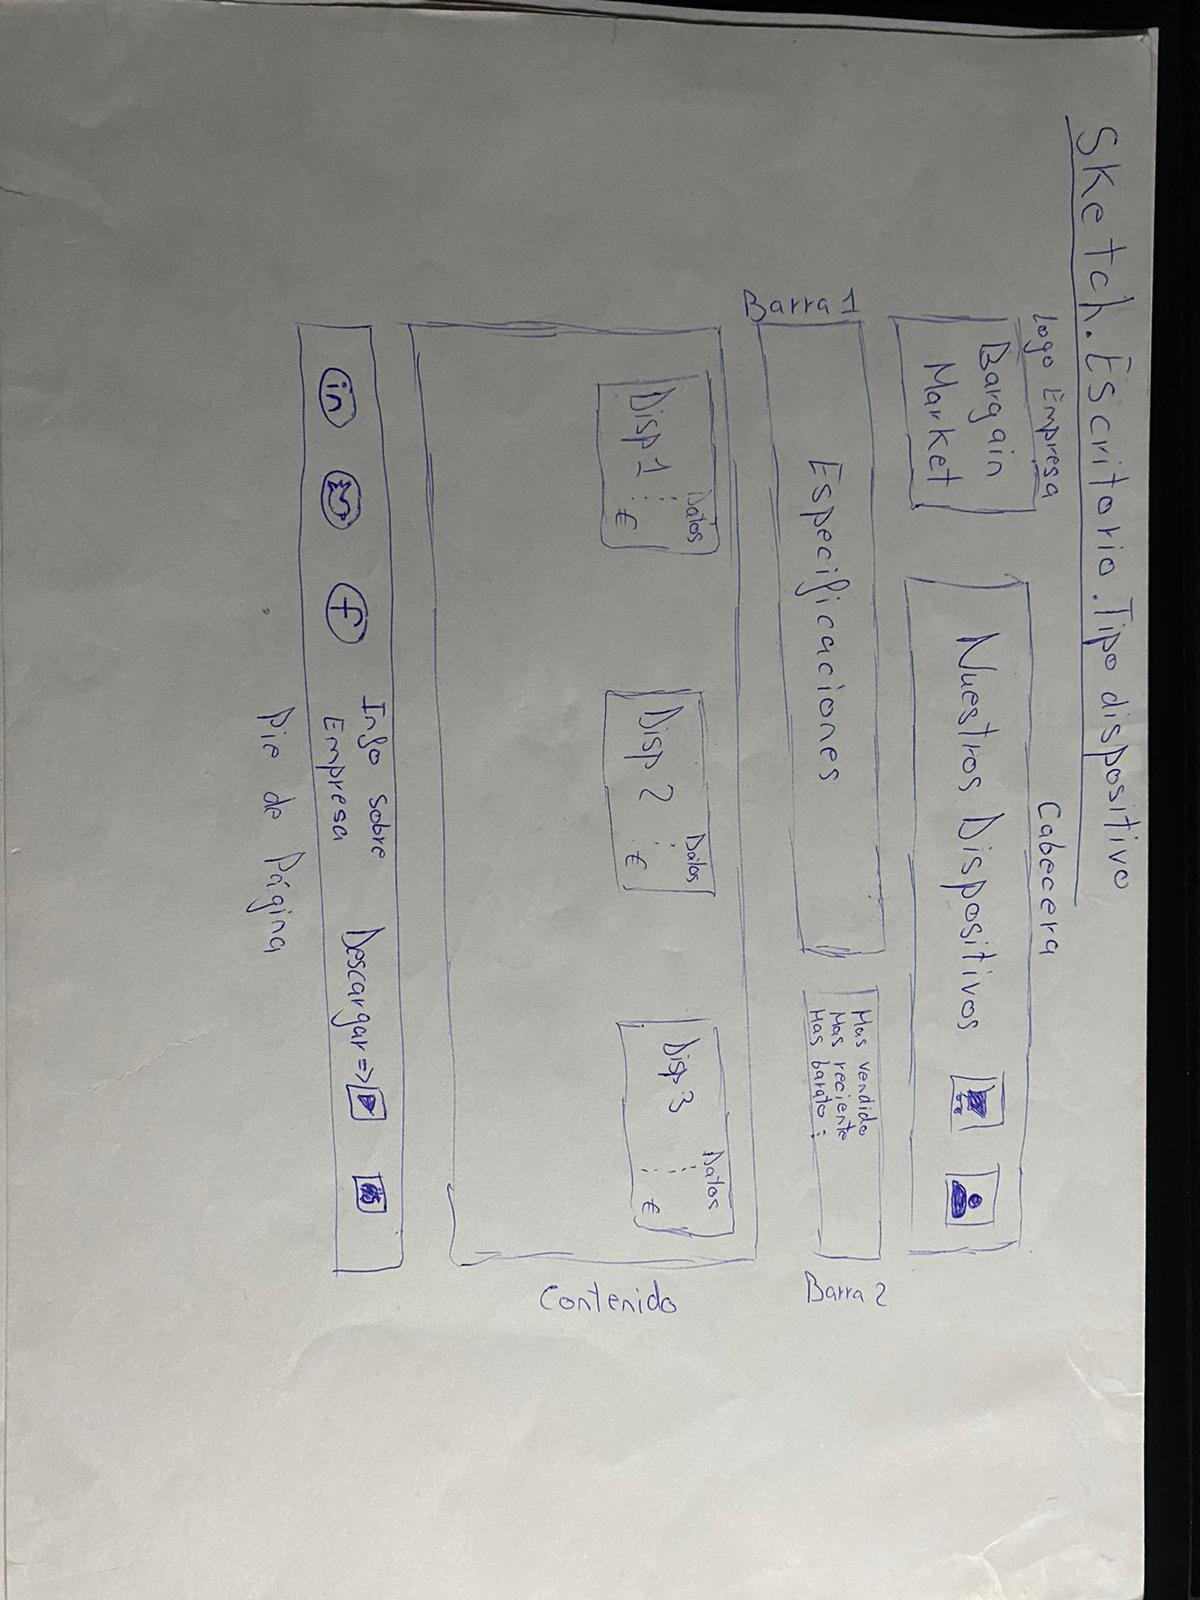 Sketch. Escritorio. Tipo dispositivo
Logo Empresa
Cabecera
Bargain
Market
Nuestros Dispositivos
Barra 1
Especificaciones
Mas vendido
Mas reciente
Mas barato
Barra 2
Disp 1
Datos
€
Disp 2
Datos
€
Disp 3
Datos
€
Contenido
in
f
Info sobre
Empresa
Descargar =>
Pie de Página